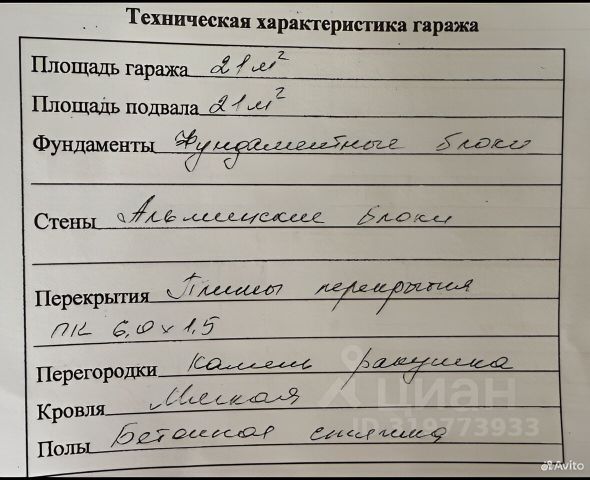 Техническая характеристика гаража
Площадь гаража 21м²
Площадь подвала 21м²
Фундаменты Фундаментные блоки
Стены Альминские блоки
Перекрытия Плиты перекрытия
ПК 6,0х1,5
Перегородки камень ракушка
Кровля Мягкая
Полы Бетонная стяжка
циан
ID 319773933
Avito